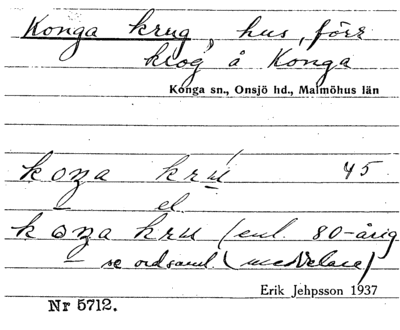 Konga krug, hus, förr
krog å Konga
Konga sn., Onsjö hd., Malmöhus län
koŋa krú 45
el.
koŋa kru (enl. 80-årig
se ordsaml. (meddelare)
Erik Jehpsson 1937
Nr 5712.